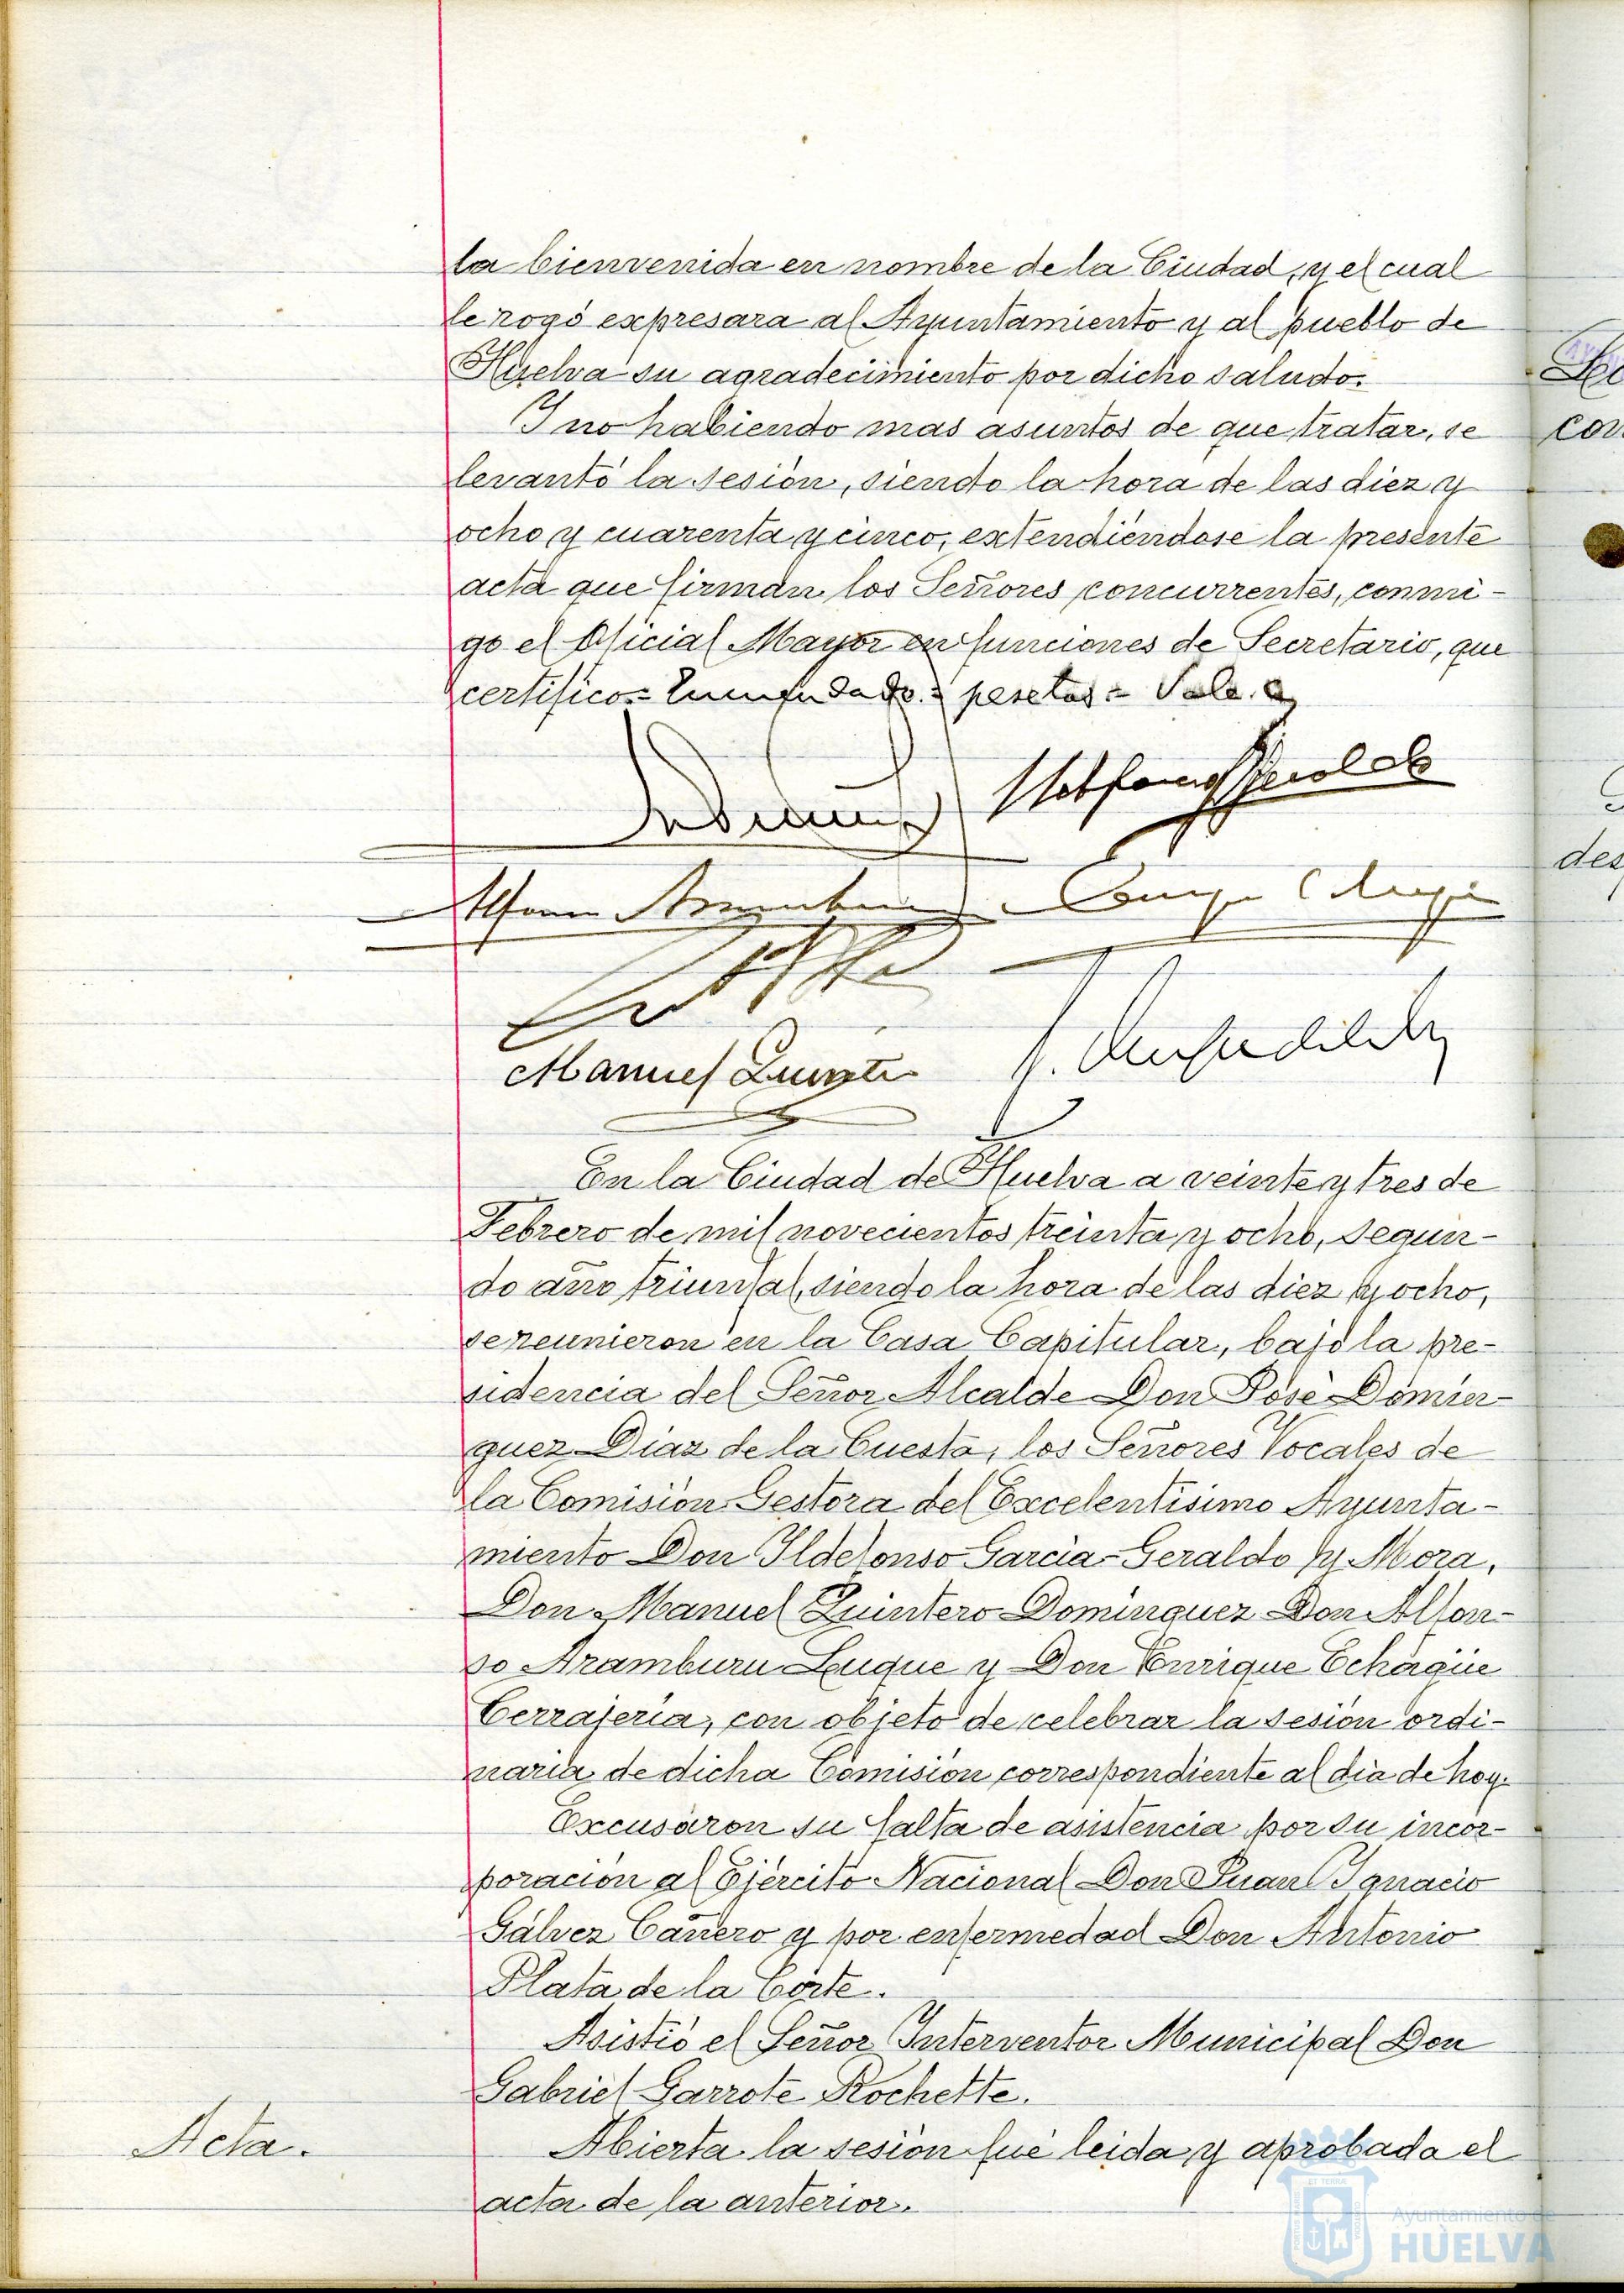 la bienvenida en nombre de la Ciudad, y el cual
le rogó expresara al Ayuntamiento y al pueblo de
Huelva su agradecimiento por dicho saludo.
Y no habiendo mas asuntos de que tratar, se
levantó la sesión, siendo la hora de las diez y
ocho y cuarenta y cinco, extendiéndose la presente
acta que firman los Señores concurrentes, conmi-
go el Oficial Mayor en funciones de Secretario, que
certifico = Enmendado = pesetas = Vale.
Manuel Quintero
En la Ciudad de Huelva a veinte y tres de
Febrero de mil novecientos treinta y ocho, segun-
do año triunfal, siendo la hora de las diez y ocho,
se reunieron en la Casa Capitular, bajo la pre-
sidencia del Señor Alcalde Don José Domín-
guez Díaz de la Cuesta, los Señores Vocales de
la Comisión Gestora del Excelentísimo Ayunta-
miento Don Ildefonso García-Geraldo y Mora,
Don Manuel Quintero Dominguez Don Alfon-
so Aramburu Luque y Don Enrique Echágüe
Cerrajería, con objeto de celebrar la sesión ordi-
naria de dicha Comisión correspondiente al día de hoy.
Excusaron su falta de asistencia por su incor-
poración al Ejército Nacional Don Juan Ignacio
Gálvez Cañero y por enfermedad Don Antonio
Plata de la Corte.
Asistió el Señor Interventor Municipal Don
Gabriel Garrote Rochette.
Acta.
Abierta la sesión fué leida y aprobada el
acta de la anterior.
Ayuntamiento de
HUELVA